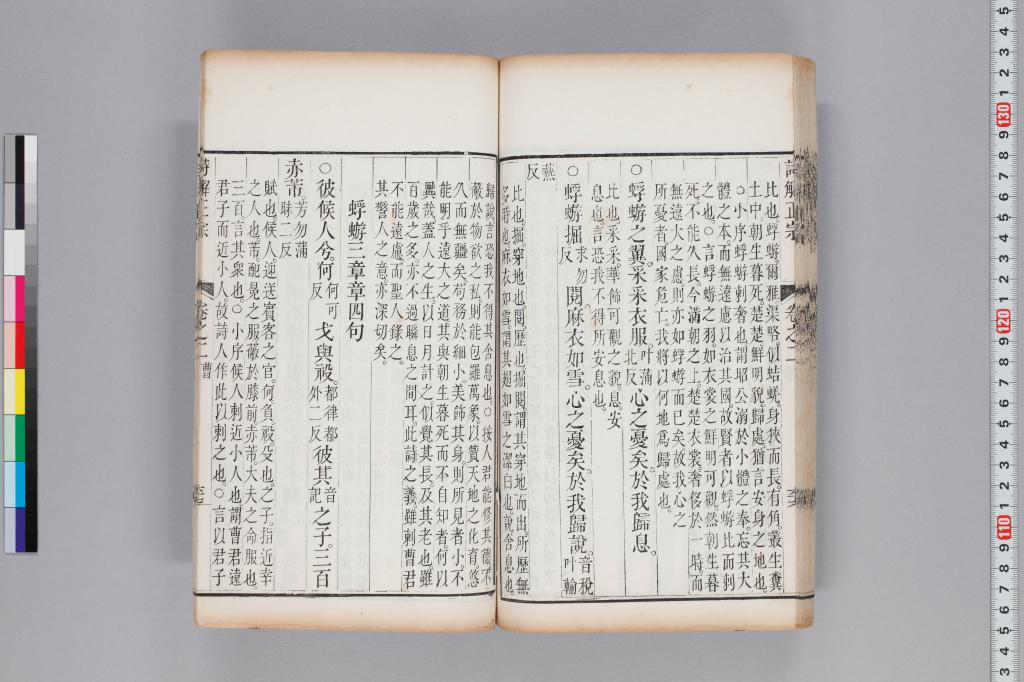 詩解正宗 卷之二 六
比也。蜉蝣。爾雅渠略。似蛣蜣。身狹而長。有角。叢生糞
土中。朝生暮死。楚楚。鮮明貌。歸處。猶言安身之地也。
○小序蜉蝣刺奢也。謂昭公溺於小體之奉。忘其大
體之本。而無遠慮以治其國。故賢者以蜉蝣比而刺
之也。○言蜉蝣之羽。如衣裳之鮮明可觀。然朝生暮
死。不能久長。今滿朝之上。楚楚衣裳。奢侈於一時。而
無遠大之慮。則亦如蜉蝣而已矣。故我心之
所憂者。國家危亡。我將以何地爲歸處也。
○蜉蝣之翼。采采衣服。叶蒲北反心之憂矣。於我歸息。
比也。采采。華飾可觀之貌。息。安
息也。言恐我不得所安息也。
○蜉蝣掘求勿反閱。麻衣如雪。心之憂矣。於我歸說。音稅叶輸
爇反
比也。掘。穿地也。閱。歷也。掘閱。謂其穿地而出。所歷無
多時也。麻衣如雪。謂其翅如雪之潔白也。說。舍息也。
歸說。言恐我不得其舍息也。○按人君能修其德。不
蔽於物欲之私。則能包羅萬象。以贊天地之化育。悠
久而無疆矣。苟務於細小。美飾其身。則所見者小。不
能明乎遠大之道。其與朝生暮死而不自知者。何以
異哉。蓋人之生。以日月計之。似覺其長。及其老也。雖
百歲之多。亦不過瞬息之間耳。此詩之義。雖刺曹君
不能遠慮。而聖人錄之。
其警人之意亦深切矣。
蜉蝣三章章四句
○彼候人兮。何何可反戈與祋。都律都外二反彼其音記之子。三百
赤芾。芳勿蒲昧二反
賦也。候人。迎送賓客之官。何。負。祋。殳也。之子。指近幸
之人也。芾。配冕之服。蔽於膝前。赤芾。大夫之命服也。
三百。言其衆也。○小序候人刺近小人也。謂曹君遠
君子而近小人。故詩人作此以刺之也。○言以君子
詩解正宗 卷之二 曹